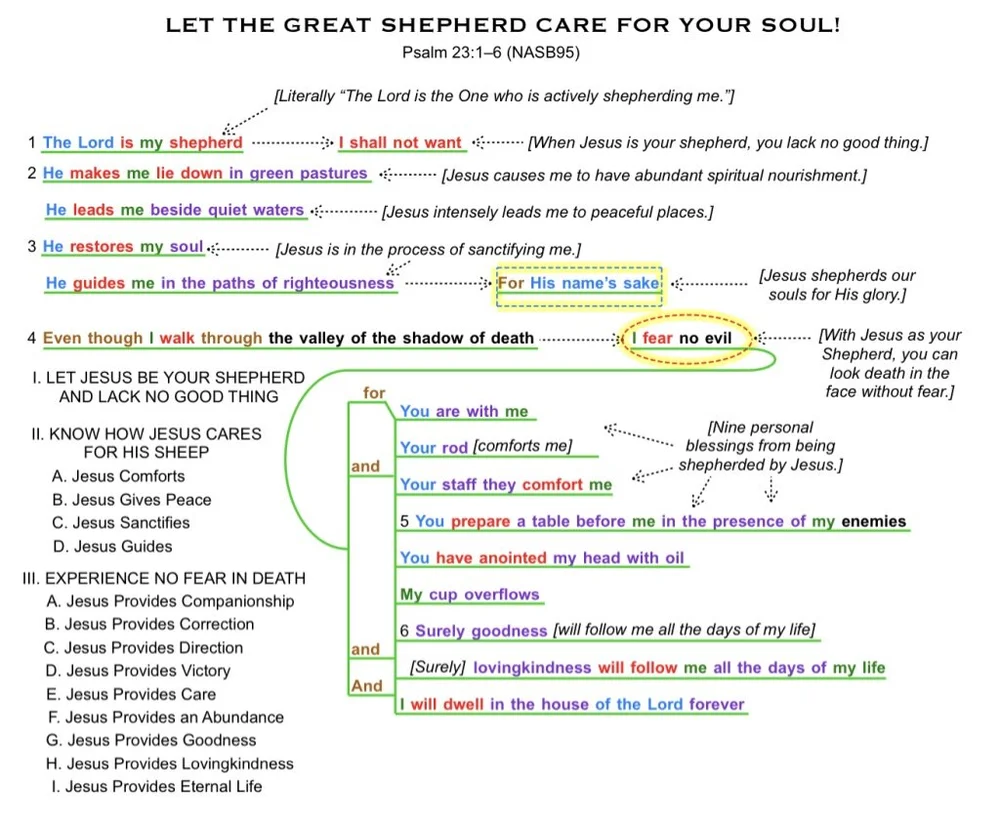 LET THE GREAT SHEPHERD CARE FOR YOUR SOUL!
Psalm 23:1–6 (NASB95)
[Literally “The Lord is the One who is actively shepherding me.”]
1 The Lord is my shepherd I shall not want [When Jesus is your shepherd, you lack no good thing.]
2 He makes me lie down in green pastures [Jesus causes me to have abundant spiritual nourishment.]
He leads me beside quiet waters [Jesus intensely leads me to peaceful places.]
3 He restores my soul [Jesus is in the process of sanctifying me.]
He guides me in the paths of righteousness For His name’s sake [Jesus shepherds our
souls for His glory.]
4 Even though I walk through the valley of the shadow of death I fear no evil [With Jesus as your
Shepherd, you can
look death in the
face without fear.]
I. LET JESUS BE YOUR SHEPHERD
AND LACK NO GOOD THING
II. KNOW HOW JESUS CARES
FOR HIS SHEEP
A. Jesus Comforts
B. Jesus Gives Peace
C. Jesus Sanctifies
D. Jesus Guides
III. EXPERIENCE NO FEAR IN DEATH
A. Jesus Provides Companionship
B. Jesus Provides Correction
C. Jesus Provides Direction
D. Jesus Provides Victory
E. Jesus Provides Care
F. Jesus Provides an Abundance
G. Jesus Provides Goodness
H. Jesus Provides Lovingkindness
I. Jesus Provides Eternal Life
for
You are with me
[Nine personal
blessings from being
shepherded by Jesus.]
Your rod [comforts me]
and
Your staff they comfort me
5 You prepare a table before me in the presence of my enemies
You have anointed my head with oil
My cup overflows
6 Surely goodness [will follow me all the days of my life]
and
[Surely] lovingkindness will follow me all the days of my life
And
I will dwell in the house of the Lord forever